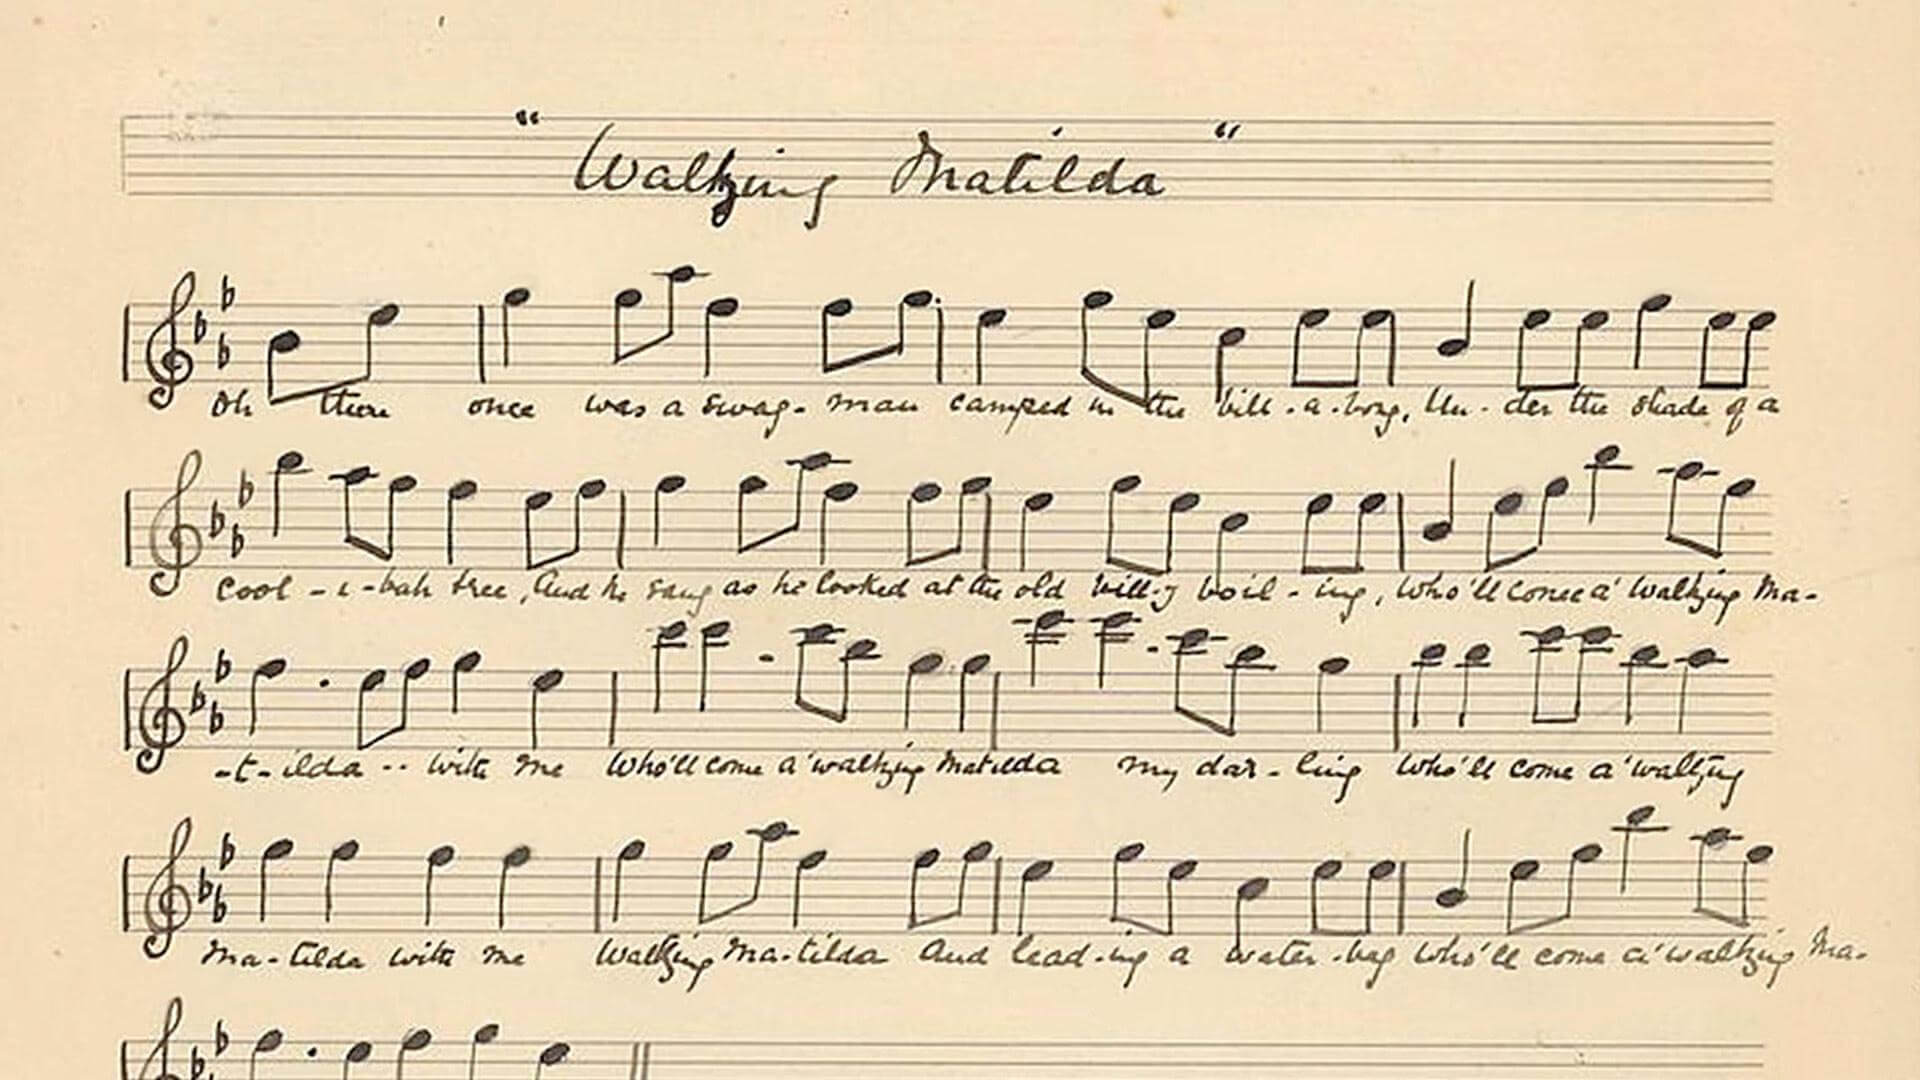 "Waltzing Matilda"
Oh there once was a swag-man camped in the bill-a-bong, Un-der the shade of a
cool-i-bah tree, And he sang as he looked at the old bill-y boil-ing, Who'll come a' waltzing Ma-
-t-ilda -- with me Who'll come a' waltzing Matilda my dar-ling Who'll come a' waltzing
Ma-tilda with me Waltzing Ma-tilda And lead-ing a water-bag Who'll come a' waltzing Ma-